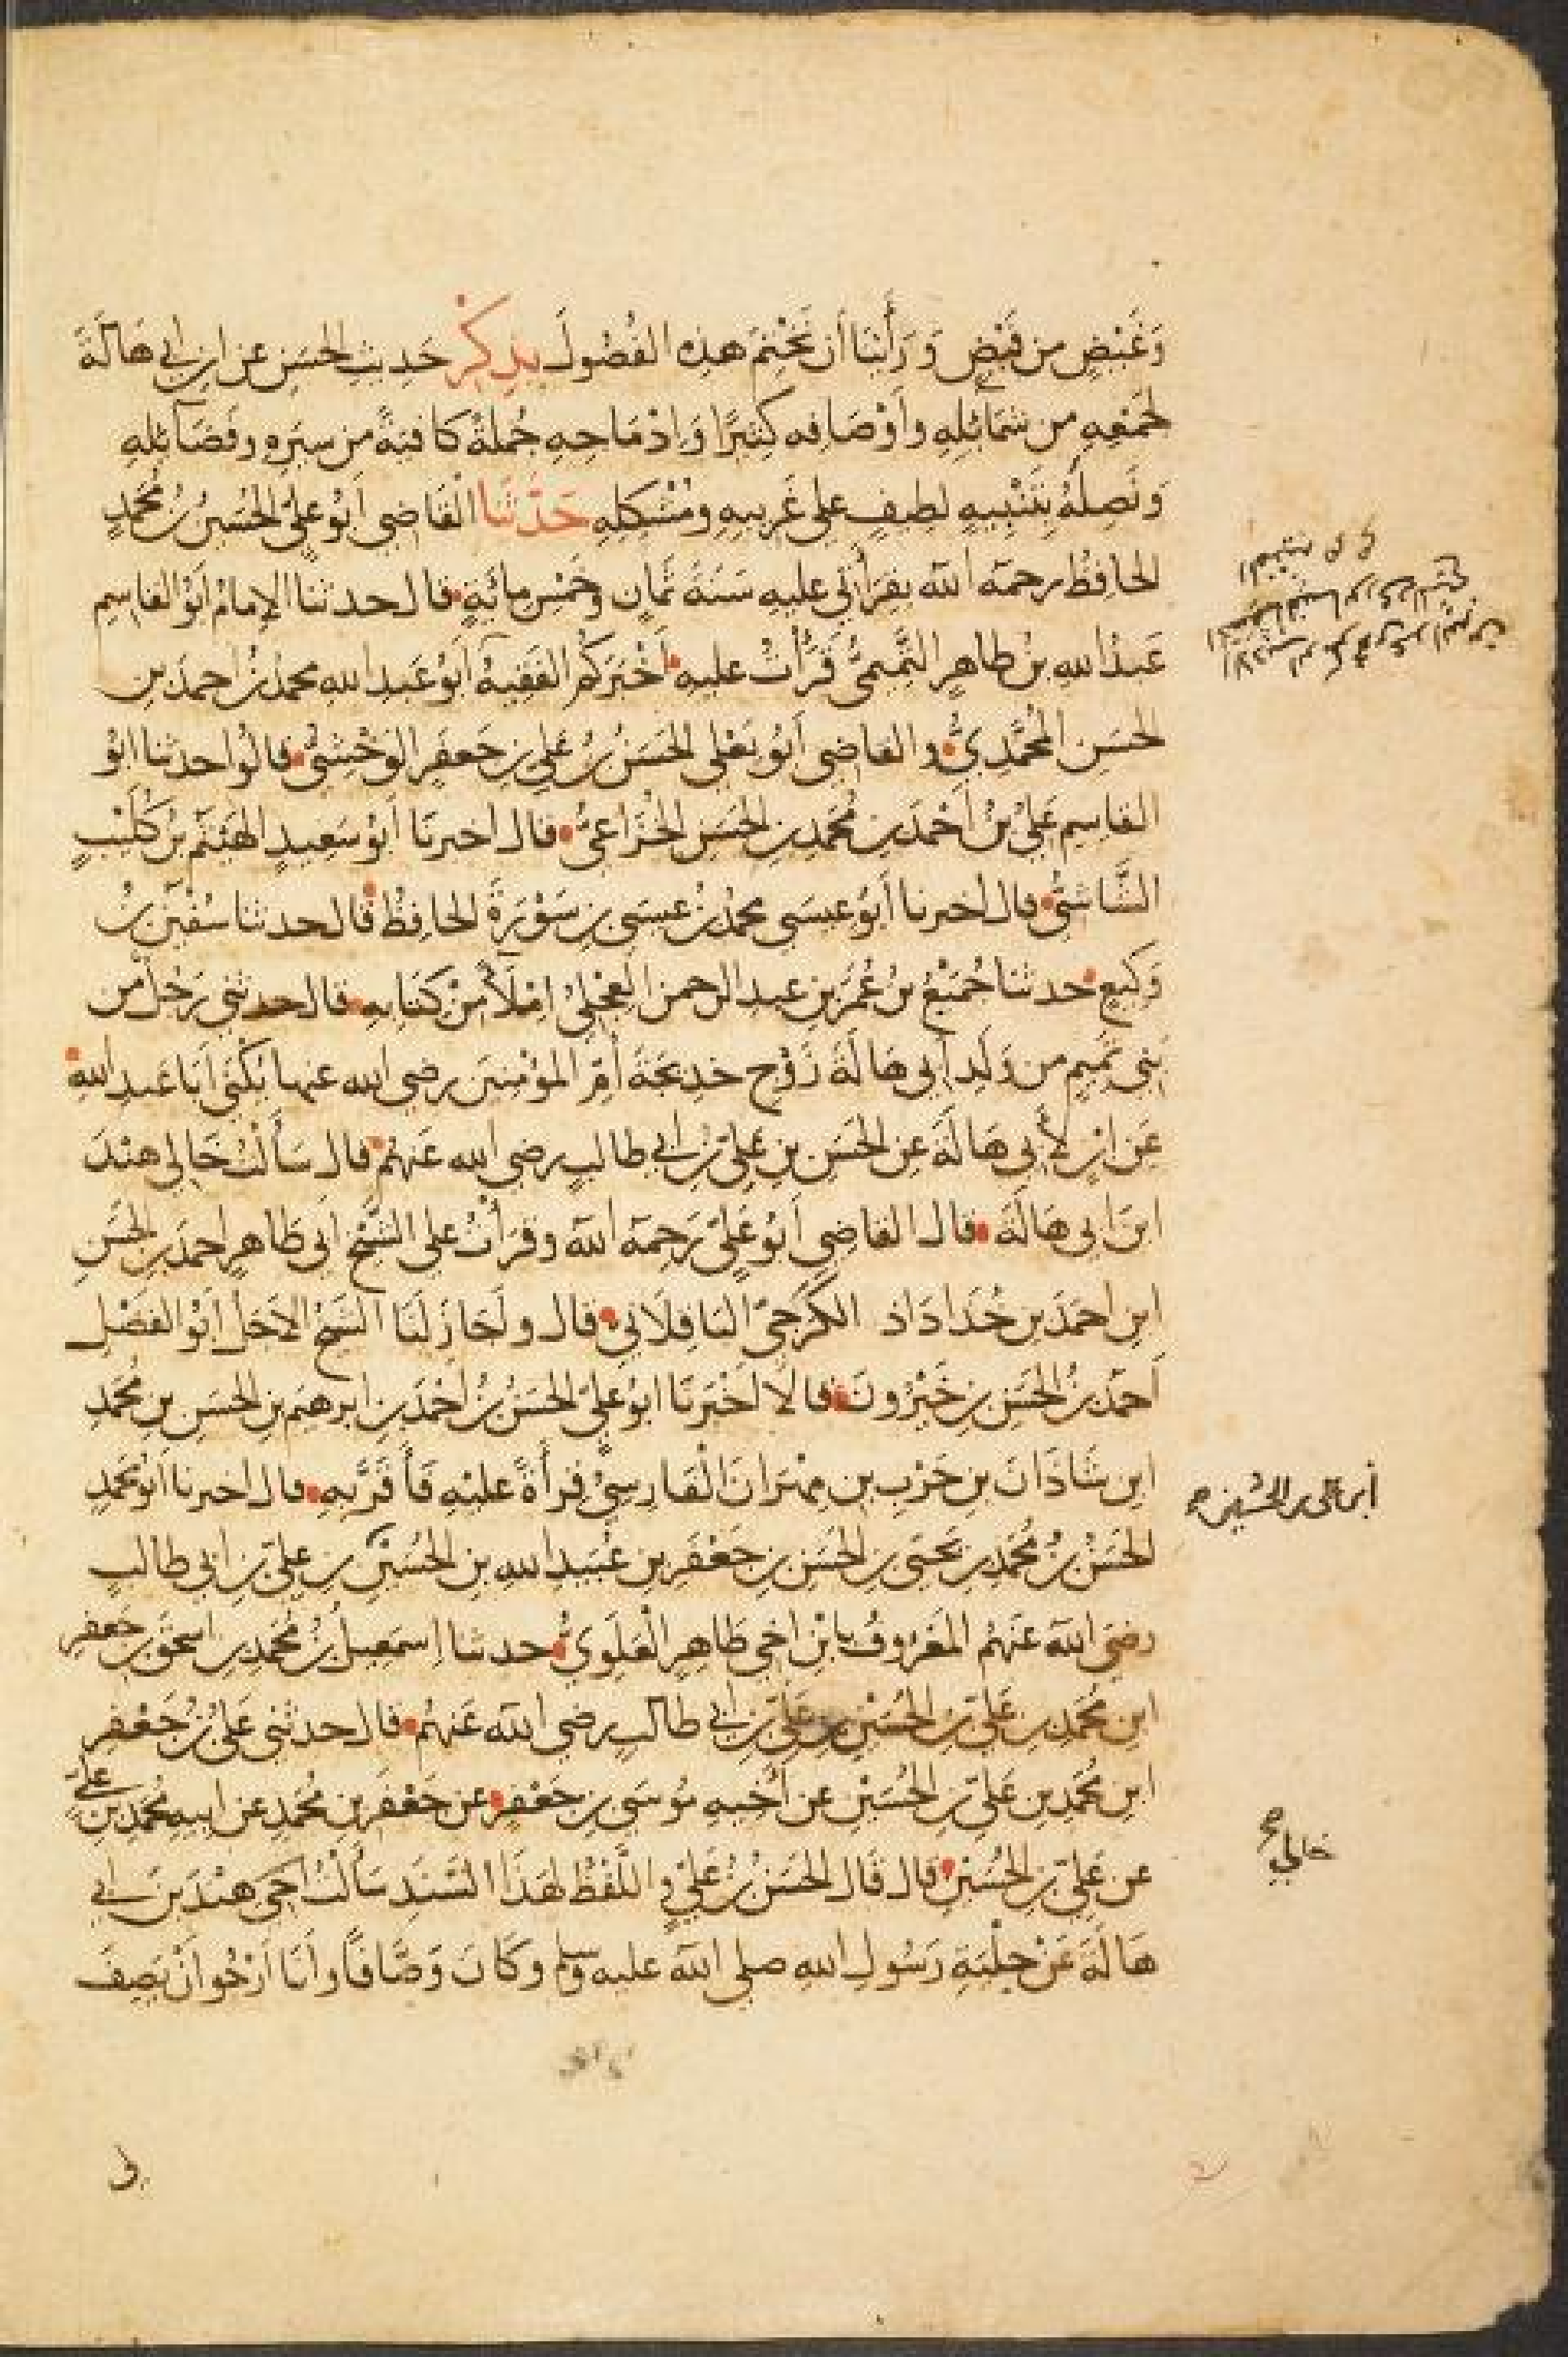 وَغَيْضٍ مِن فَيْضٍ وَرَأَيْنَا أَن نَخْتِمَ هذِهِ الفُصُولَ بِذِكْرِ حَدِيثِ الحَسَنِ عن ابن ابي هَالَةَ
لِجَمْعِهِ من شَمَائِلِهِ وأَوْصَافِه كَثِيرًا وَادْمَاجِهِ جُملةً كافيةً من سِيَرِهِ وفَضَائِلِهِ
وَنَصِلُهُ بِتَنْبِيهٍ لطِيفٍ على غَرِيبِهِ ومُشْكِلِهِ حَدَّثَنَا القَاضِي أَبُو عَلِيٍّ الحُسَيْنُ بنُ مُحَمَّدٍ
الحافِظُ رحمَهُ اللهُ بِقِرَأَتِي عليهِ سَنَةَ ثَمَانٍ وخَمْسِ مِائَةٍ قال حدثنا الإمامُ أَبُو القاسِم
عَبدُ اللهِ بنُ طاهرٍ التَّمِيمِيُّ قَرَأْتُ عليهِ أَخْبَرَكُم الفَقِيهُ أَبُو عَبدِ الله محمدُ بنُ احمدَ بنِ
الحَسَنِ المُحَمَّدِيُّ والقاضي أَبُو يَعْلَى الحَسَنُ بنُ عَلِيِّ بنِ جَعفَرٍ الوَخْشِيُّ قالُوا حدثنا ابُو
القاسِم عَلِيُّ بْنُ أَحْمَدَ بنِ مُحَمَّدِ بنِ الحَسَنِ الخُزَاعِيُّ قال اخبرنَا أَبُو سَعِيدٍ الهَيْثَمُ بنُ كُلَيْبٍ
الشَّاشِيُّ قال اخبرنا أَبُو عِيسَى محمدُ بنُ عِيسَى بنِ سَوْرَةَ الحافِظُ قال حدثنا سُفْيٰنُ بنُ
وَكِيعٍ حدثنا جُمَيْعُ بنُ عُمَرَ بنِ عبدِ الرحمنِ العِجْلِيُّ امْلَاءً مِنْ كِتَابِهِ قال حدثني رَجُلٌ من
بَنِي تَمِيمٍ من وَلَدِ أَبِي هَالَةَ زَوْجِ خدِيجَةَ أُمِّ المؤمنِينَ رضي الله عنها يُكْنَى أَبَا عَبدِ اللهِ
عَن ابْنٍ لِأَبِي هَالَةَ عن الحَسَنِ بنِ عَلِيِّ بنِ ابي طالبٍ رضي الله عَنهُم قال سَأَلْتُ خَالِي هنْدَ
ابنَ ابي هَالَةَ قال القاضي أَبُو عَلِيٍّ رَحِمَهُ اللهُ وقَرَأْتُ على الشَّيْخِ ابي طَاهِرٍ احمدَ بنِ الحَسَنِ
ابنِ احمَدَ بنِ خُذَادَاذ الكَرَجِيِّ البَاقِلَانِي قال وأَجَازَ لَنَا الشَّيْخُ الأَجَلُّ أَبُو الفَضْلِ
أَحمَدُ بنُ الحَسَنِ بنِ خَيْرُونَ قالَا أَخْبَرَنَا ابُو عَلِيٍّ الحَسَنُ بنُ أَحْمَدَ بنِ ابرهِيمَ بنِ الحَسَنِ بنِ مُحَمَّدِ
ابنِ شَاذَانَ بنِ حَرْبِ بنِ مِهْرَانَ الْفَارِسِيُّ قِرَأَةً علَيْهِ فَأَقَرَّ بِهِ قال اخبرنا أَبُو مُحَمَّدٍ
الحَسَنُ بنُ مُحَمَّدِ بنِ يَحيَى بنِ الحَسَنِ بنِ جَعْفَرِ بنِ عُبَيدِ اللهِ بنِ الحُسَيْنِ بنِ عَلِيِّ بنِ ابي طالبٍ
رضيَ اللهُ عَنهُم المَعْرُوفُ بابْنِ اخي طَاهِرٍ العَلَوِيُّ حدثنا اِسمَعِيلُ بنُ مُحَمَّدِ بنِ اسحٰقَ بنِ جَعفرِ
ابنِ مُحَمَّدِ بنِ عَلِيِّ بنِ الحُسَيْنِ بنِ عَلِيِّ بنِ ابي طالبٍ رضي اللهُ عَنهُم قال حدثني عَلِيُّ بنُ جَعْفَرِ
ابنِ مُحَمَّدِ بنِ عَلِيِّ بنِ الحُسَيْنِ عن أَخِيهِ مُوسَى بنِ جَعْفَرٍ عن جَعْفَرِ بنِ مُحَمَّدٍ عن ابِيهِ مُحَمَّدِ بنِ عَلِيٍّ
عن عَلِيِّ بنِ الحُسَيْنِ قال قَالَ الحَسَنُ بنُ عَلِيٍّ واللَّفْظُ لهَذَا السَّنَدِ سَأَلْتُ اخي هِنْدَ بنَ ابي
هَالَةَ عَنْ حِلْيَةِ رَسُولِ اللهِ صلى اللهُ عليه وسلم وَكَانَ وَصَّافًا وأَنَا أَرْجُو أَنْ يَصِفَ
ابن على بن الحُسَين صح
خالي صح
لي